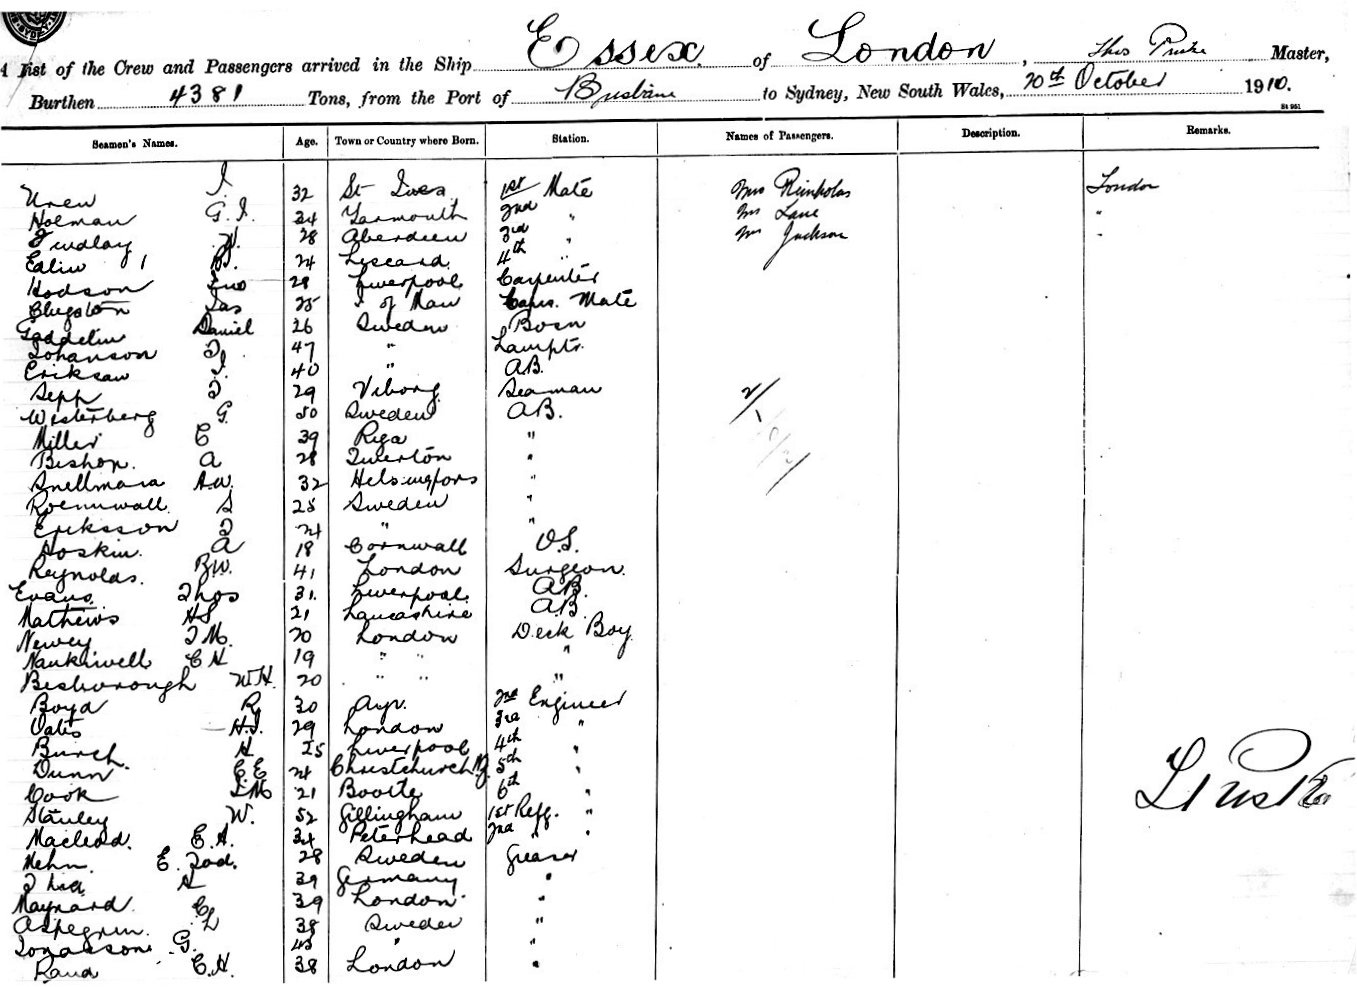 A List of the Crew and Passengers arrived in the Ship Essex of London, Thos Master,
Burthen 4381 Tons, from the Port of Brisbane to Sydney, New South Wales, 20th October 1910.
St 951
Seamen's Names. Age. Town or Country where Born. Station. Names of Passengers. Description. Remarks.
Uren J. 32 St Ives 1st Mate Mrs London
Holman G. J. 34 Yarmouth 2nd " Mr Lane "
Findlay W. 28 Aberdeen 3rd " Mr Jackson "
24 Liscard 4th "
Hodson 28 Liverpool Carpenter
Clugston Jas 25 I of Man Carps. Mate
Daniel 26 Sweden Bosn
Johanson J 47 " Lamptr.
Erikson J. 40 " AB.
Sepp J 29 Viborg Seaman
Westerberg G. 50 Sweden AB.
Miller C 39 Riga "
Bishop. A 28 Tiverton "
Snellmara A.W. 32 Helsingfors "
S 25 Sweden "
Eriksson J 24 " "
Hoskin. A 18 Cornwall O.S.
Reynolds. B.W. 41 London Surgeon.
Evans. Thos 31. Liverpool. AB.
Mathews HS 21 Lancashire AB.
Newey J.M. 20 London Deck Boy
Nankivell C H 19 " " "
Besborough W.H. 20 " " "
Boyd R 30 Ayr. 2nd Engineer
Oates H.J. 29 London 3rd "
Burch. H 25 Liverpool 4th "
Dunn. E.E 24 Christchurch NZ 5th "
Cook J M 21 Bootle 6th "
Stanley W. 52 Gillingham 1st Refg. "
Macleod. E.A. 34 Peterhead 2nd " "
Hehn. E. Tod. 28 Sweden Greaser
H 39 Germany "
Maynard. C 39 London "
Aspegrin. L 38 Sweden "
Jonasson G. 43 " "
Rand C.H. 38 London "